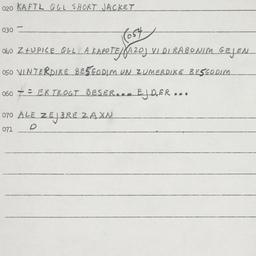 020 KAFTL QGL SHORT JACKET
030 –
054
060 Z+UPICE QGL A KAPOTE/AZOJ VI DI RABONIM GEJEN
050 VINTERDIKE BE5GODIM UN ZUMERDIKE BE5GODIM
060 – = ER TROGT BESER... EJDER...
070 ALE ZEJERE ZAXN
071 D